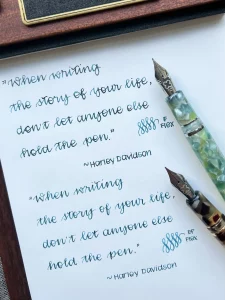 "When writing
the story of your life,
don't let anyone else
hold the pen."
EF
FLEX
~Harley Davidson
"When writing
the story of your life,
don't let anyone else
hold the pen."
EF
FLEX
~Harley Davidson